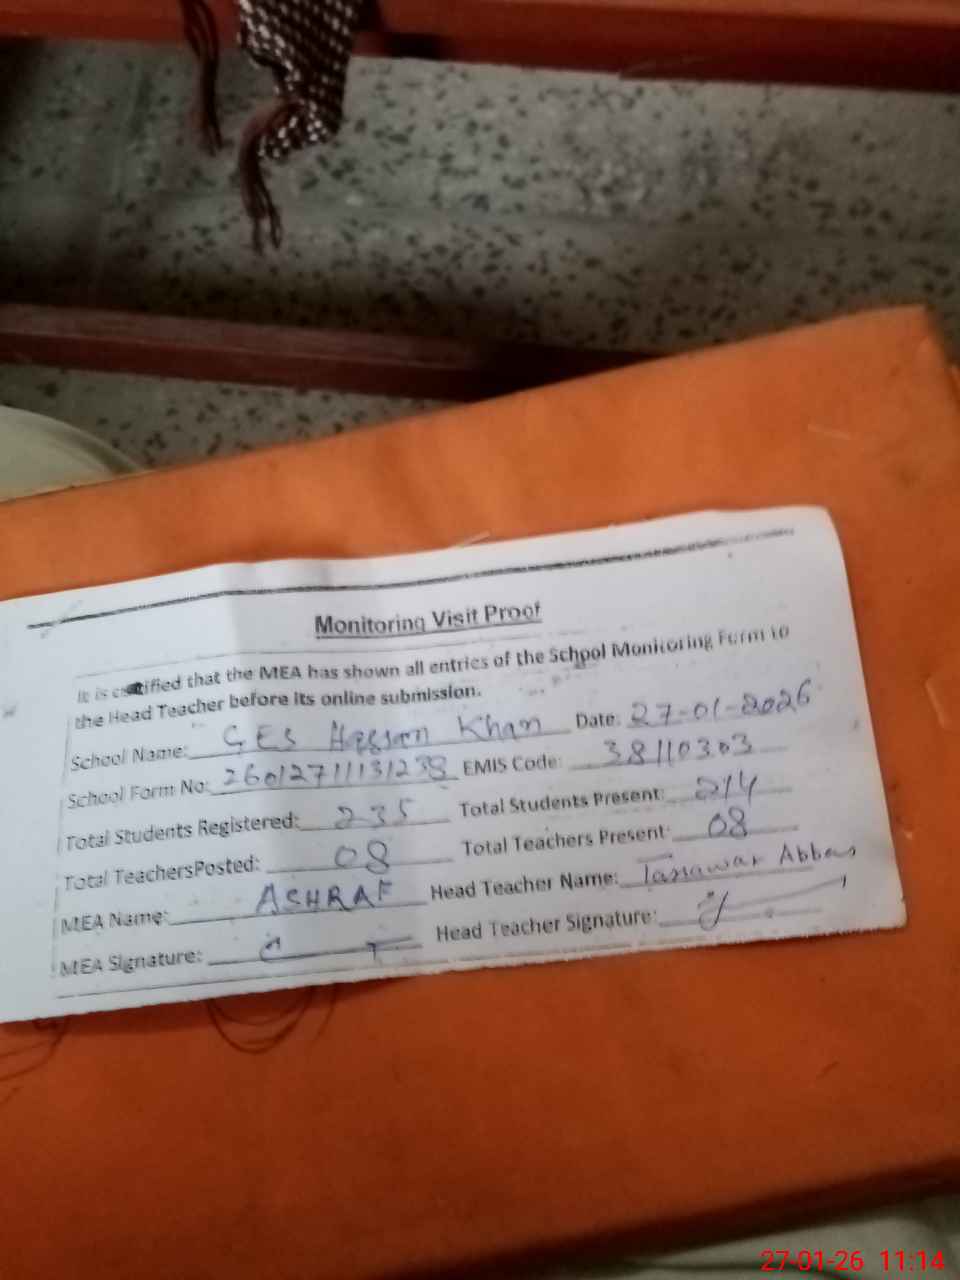 Monitoring Visit Proof
It is certified that the MEA has shown all entries of the School Monitoring Form to
the Head Teacher before its online submission.
School Name: GES Hassan Khan Date: 27-01-2026
School Form No: 26012711131238 EMIS Code: 38110303
Total Students Registered: 235 Total Students Present: 214
Total TeachersPosted: 08 Total Teachers Present: 08
MEA Name: ASHRAF Head Teacher Name: Tassawar Abbas
MEA Signature: Head Teacher Signature:
27-01-26 11:14